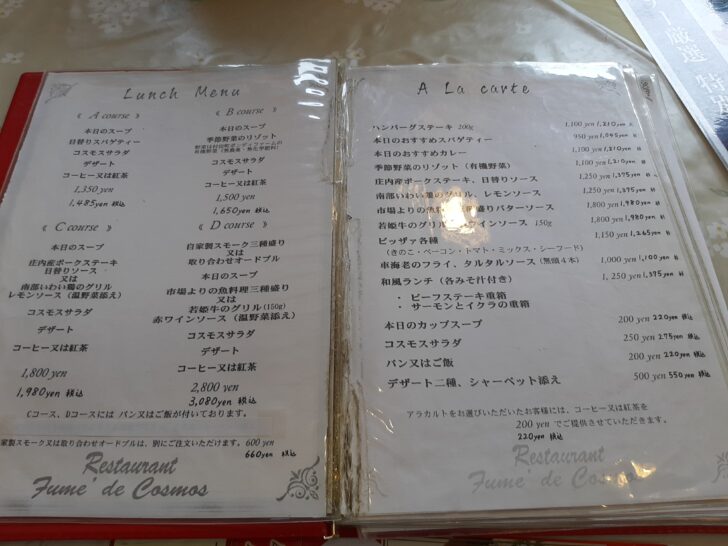 Lunch Menu
《 A course 》
本日のスープ
日替りスパゲティー
コスモスサラダ
デザート
コーヒー又は紅茶
1,350 yen
1,485yen 税込
《 B course 》
本日のスープ
季節野菜のリゾット
コスモスサラダ
デザート
コーヒー又は紅茶
1,500 yen
1,650yen 税込
《 C course 》
本日のスープ
庄内産ポークステーキ
日替りソース
又は
南部いわい鶏のグリル
レモンソース（温野菜添え）
コスモスサラダ
デザート
コーヒー又は紅茶
1,800 yen
1,980yen 税込
《 D course 》
自家製スモーク三種盛り
又は
取り合わせオードブル
本日のスープ
市場よりの魚料理三種盛り
又は
若姫牛のグリル(150g)
赤ワインソース（温野菜添え）
コスモスサラダ
デザート
コーヒー又は紅茶
2,800 yen
3,080yen 税込
Cコース、Dコースには パン又はご飯が付いております。
家製スモーク又は取り合わせオードブルは、別にご注文いただけます。600 yen
660yen 税込
Restaurant
Fume' de Cosmos
A La carte
ハンバーグステーキ 100g 1,100 yen 1,210yen
本日のおすすめスパゲティー 950 yen 1,045yen
本日のおすすめカレー 1,100 yen 1,210yen
季節野菜のリゾット（有機野菜） 1,100 yen 1,210yen
庄内産ポークステーキ、日替りソース 1,250 yen 1,375yen
南部いわい鶏のグリル、レモンソース 1,250 yen 1,375yen
市場よりの魚料 盛りバターソース 1,800 yen 1,980yen
若姫牛のグリル インソース 150g 1,800 yen 1,980yen
ピッザァ各種 1,150 yen 1,265yen
（きのこ・ベーコン・トマト・ミックス・シーフード）
車海老のフライ、タルタルソース（無頭４本） 1,000 yen 1,100yen
和風ランチ（各みそ汁付き） 1,250 yen 1,375yen
・ ビーフステーキ重箱
・ サーモンとイクラの重箱
本日のカップスープ 200 yen 220yen 税込
コスモスサラダ 250 yen 275yen 税込
パン又はご飯 200 yen 220yen 税込
デザート二種、シャーベット添え 500 yen 550yen 税込
アラカルトをお選びいただいたお客様には、コーヒー又は紅茶を
200 yen でご提供させていただきます。
220yen 税込
Restaurant
Fume' de Cosmos
厳選